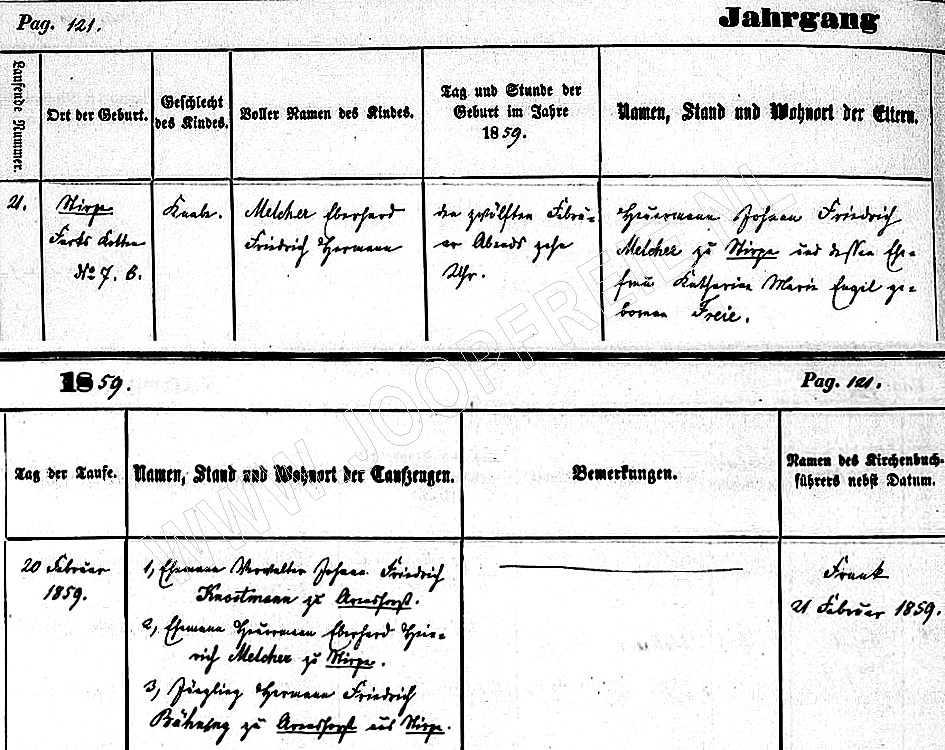 Pag. 121.
Jahrgang
Laufende Nummer.
Ort der Geburt.
Geschlecht
des Kindes.
Voller Namen des Kindes.
Tag und Stunde der
Geburt im Jahre
1859.
Namen, Stand und Wohnort der Eltern.
21.
Stirpe
Kotten
No 7. b.
Knabe.
Melcher Eberhard
Friedrich Hermann
den zwölften Febru-
ar Abends zehn
Uhr.
Heuermann Johann Friedrich
Melcher zu Stirpe und dessen Ehe-
frau Katharine Marie Engel ge-
borene Freie.
1859.
Pag. 121.
Tag der Taufe.
Namen, Stand und Wohnort der Taufzeugen.
Bemerkungen.
Namen des Kirchenbuch-
führers nebst Datum.
20 Februar
1859.
1, Ehemann Verwalter Johann Friedrich
Knostmann zu Arenshorst.
2, Ehemann Heuermann Eberhard Hein-
rich Melcher zu Stirpe.
3, Jüngling Hermann Friedrich
zu Arenshorst aus Stirpe.
Frank
21 Februar 1859.
WWW.JOOPFREIE.NL